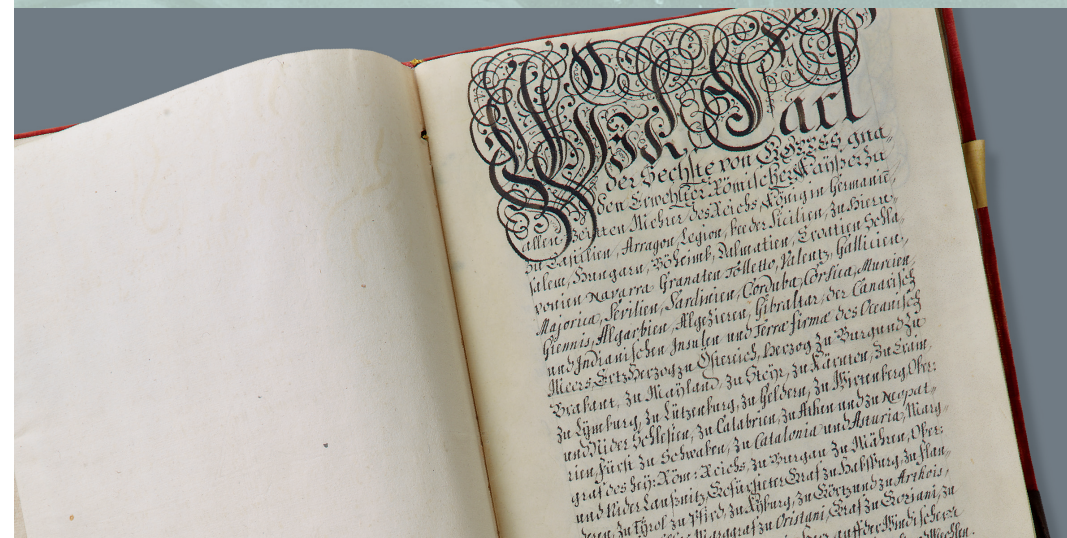 WIR Carl
der Sechste von GOTTES gna-
den Erwehlter Römischer Kayser zu
allen Zeiten Mehrer des Reichs, König in Germanie
zu Castilien, Arragon, Legion, beeder Sicilien, zu Hieru-
salem, Hungarn, Böheimb, Dalmatien, Croatien Scla-
vonien Navarra Granaten Tolletto, Valentz, Gallicien,
Majorica, Sevilien, Sardinien, Corduba, Corsica, Murcien,
Giennis, Algarbien, Algezieren, Gibraltar, der Canarisch
und Indianischen Insulen und Terra firma des Oceanisch
Meers, Ertzherzog zu Österreich, Herzog zu Burgund zu
Brabant, zu Mayland, zu Steyr, zu Kärnten, zu Crain,
zu Lymburg, zu Lützenburg, zu Geldern, zu Wirtenberg Ober:
und Nider Schlesien, zu Calabrien, zu Athen und zu Neopat-
rien, Fürst zu Schwaben, zu Catalonia und Asturia, Marg-
graf des Heÿ: Röm: Reichs, zu Burgau zu Mähren, Ober:
und Nider Laußnitz, Gefürsteter Graf zu Habsburg, zu Flan-
dern, zu Tÿrol zu Pfird, zu Kÿburg, zu Görtz und zu Arthois,
Marggraf zu Oristani, Graf zu Goziani, zu
auff der Windischen